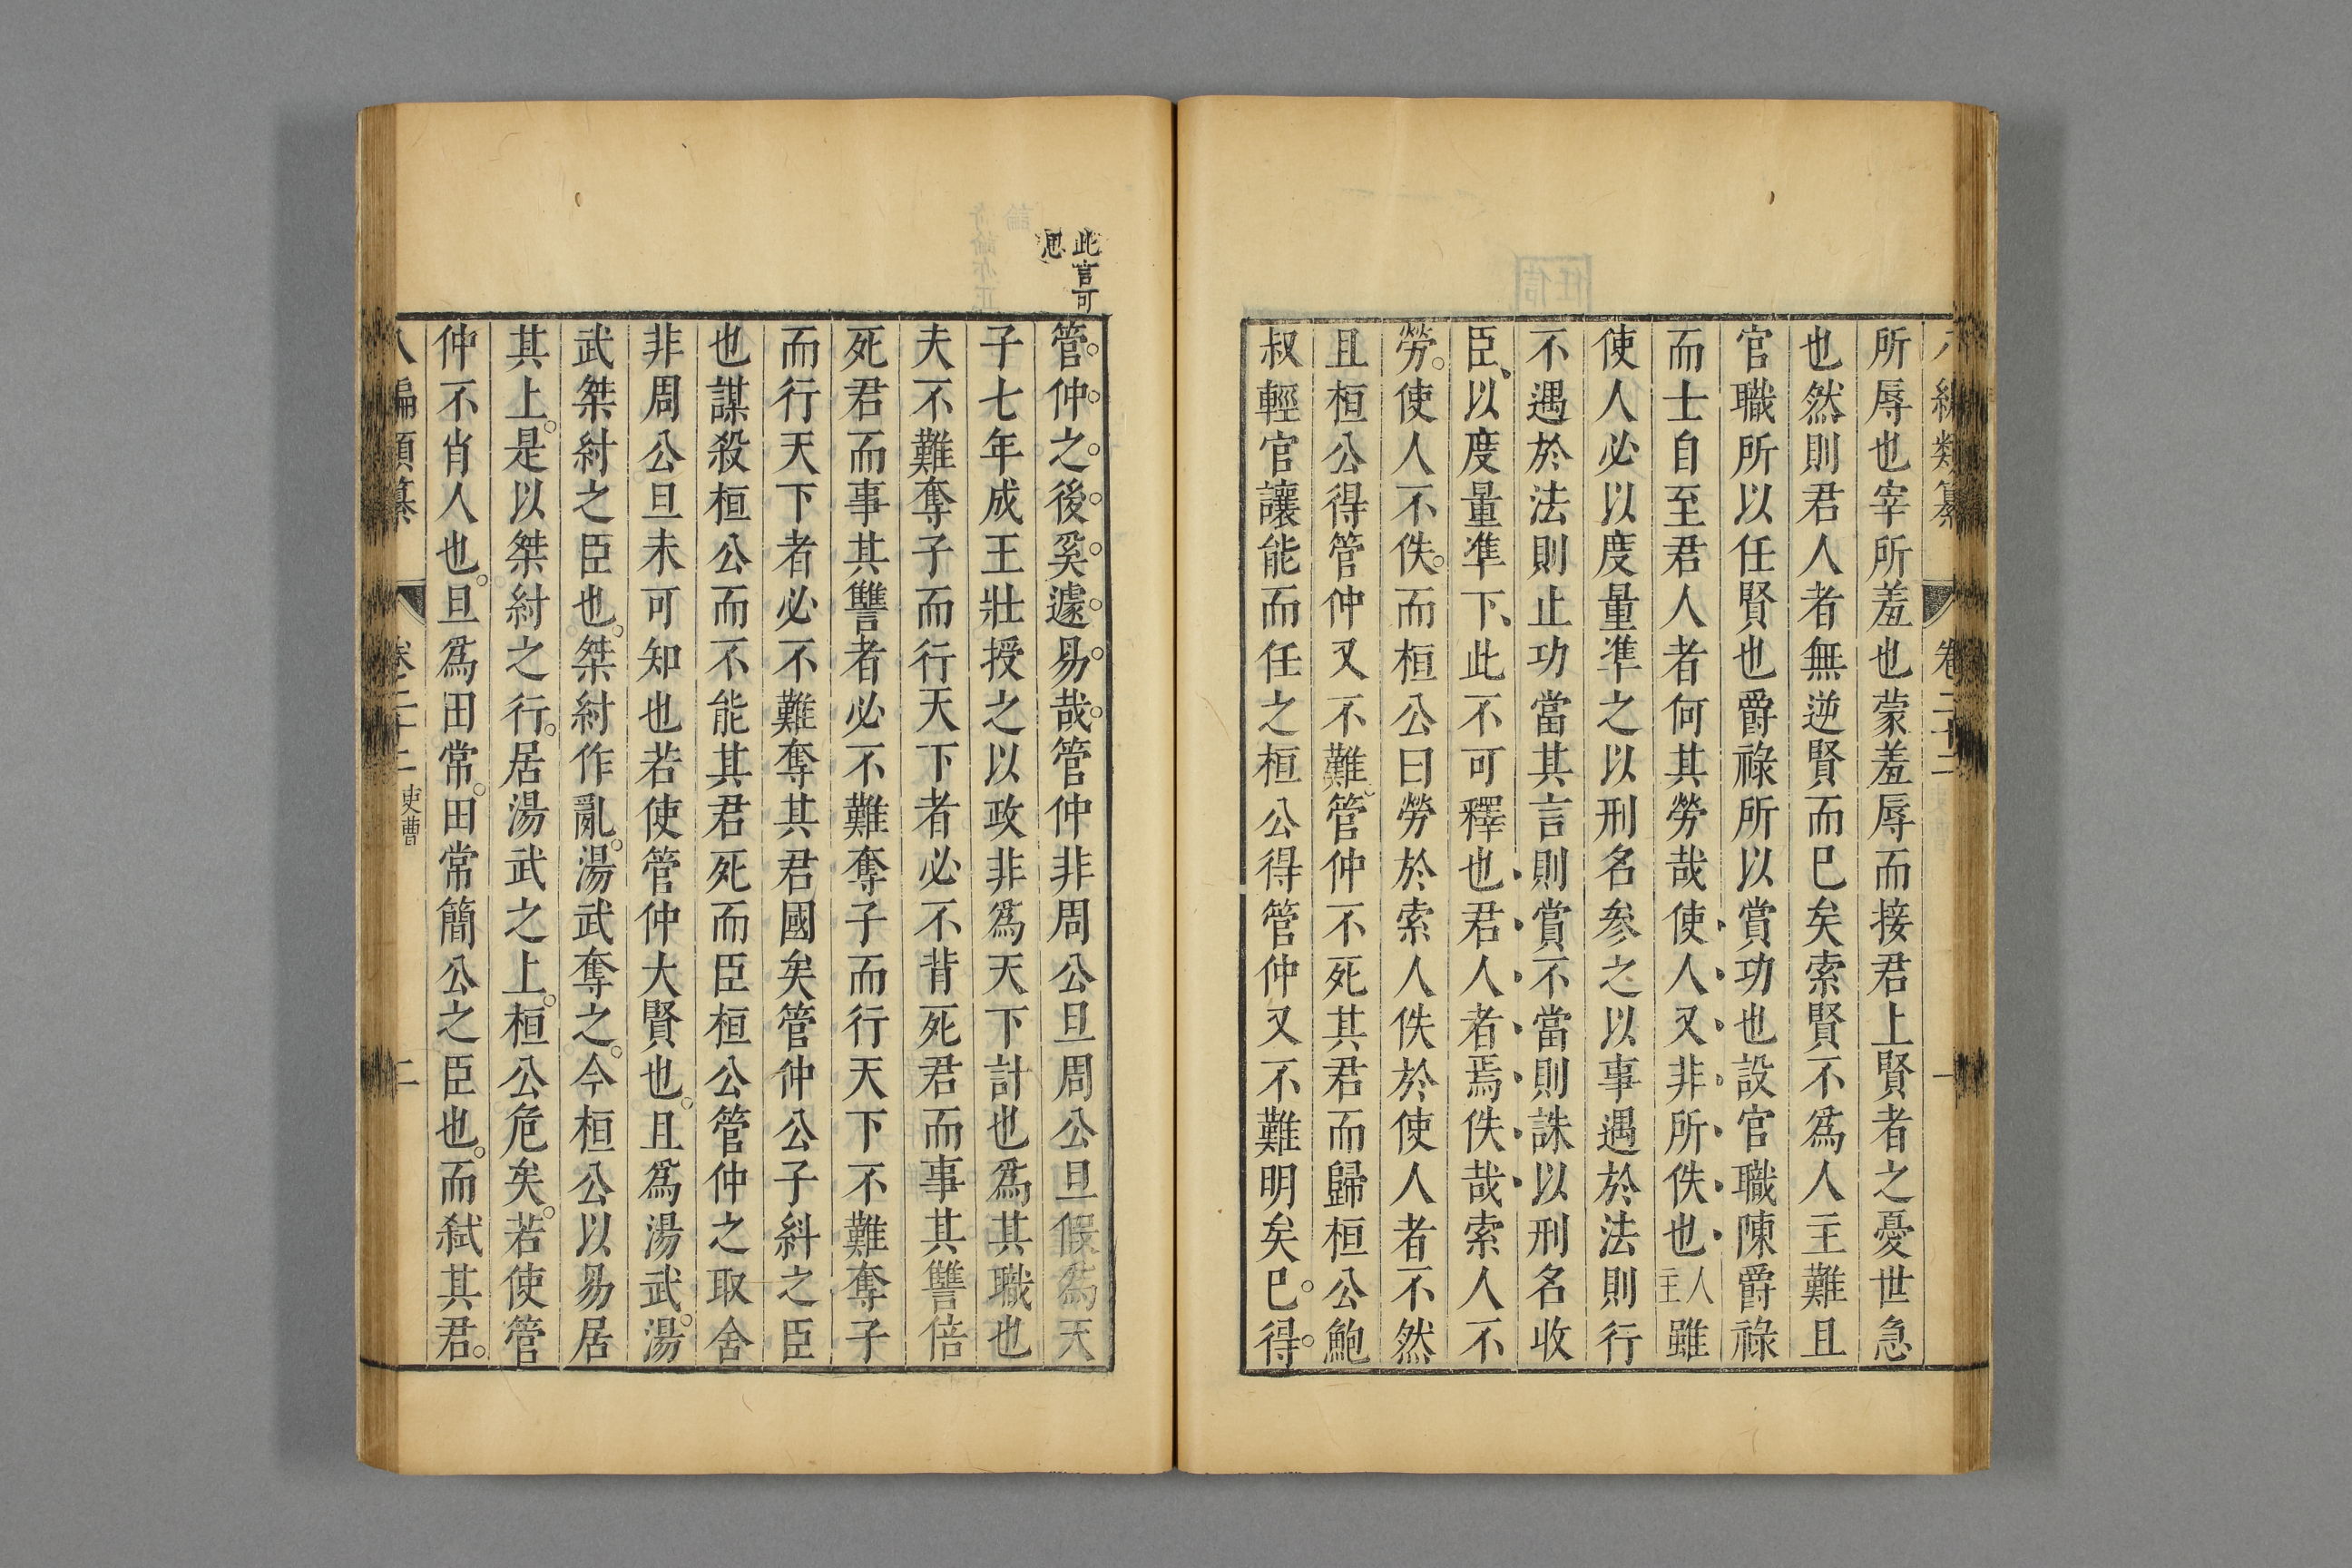 八編類纂 卷二十二 一
所辱也宰所羞也蒙羞辱而接君上賢者之憂世急
也然則君人者無逆賢而巳矣索賢不爲人主難且
官職所以任賢也爵祿所以賞功也設官職陳爵祿
而士自至君人者何其勞哉使人又非所佚也人主雖
使人必以度量準之以刑名參之以事遇於法則行
不遇於法則止功當其言則賞不當則誅以刑名收
臣、以度量準下、此不可釋也君人者焉佚哉索人不
勞。使人不佚。而桓公曰勞於索人佚於使人者不然
且桓公得管仲又不難。管仲不死其君而歸桓公鮑
叔輕官讓能而任之桓公得管仲又不難明矣巳。得。
此言可
思
管。仲。之。後。奚。遽。易。哉。管仲非周公旦周公旦假爲天
子七年成王壯授之以政非爲天下計也爲其職也
夫不難奪子而行天下者必不背死君而事其讐倍
死君而事其讐者必不難奪子而行天下不難奪子
而行天下者必不難奪其君國矣管仲公子糾之臣
也謀殺桓公而不能其君死而臣桓公管仲之取舍
非周公旦未可知也若使管仲大賢也。且爲湯武。湯
武桀紂之臣也。桀紂作亂。湯武奪之。今桓公以易居
其上。是以桀紂之行。居湯武之上。桓公危矣。若使管
仲不肖人也。旦爲田常。田常簡公之臣也。而弑其君。
八編類纂 卷二十二 吏曹 二